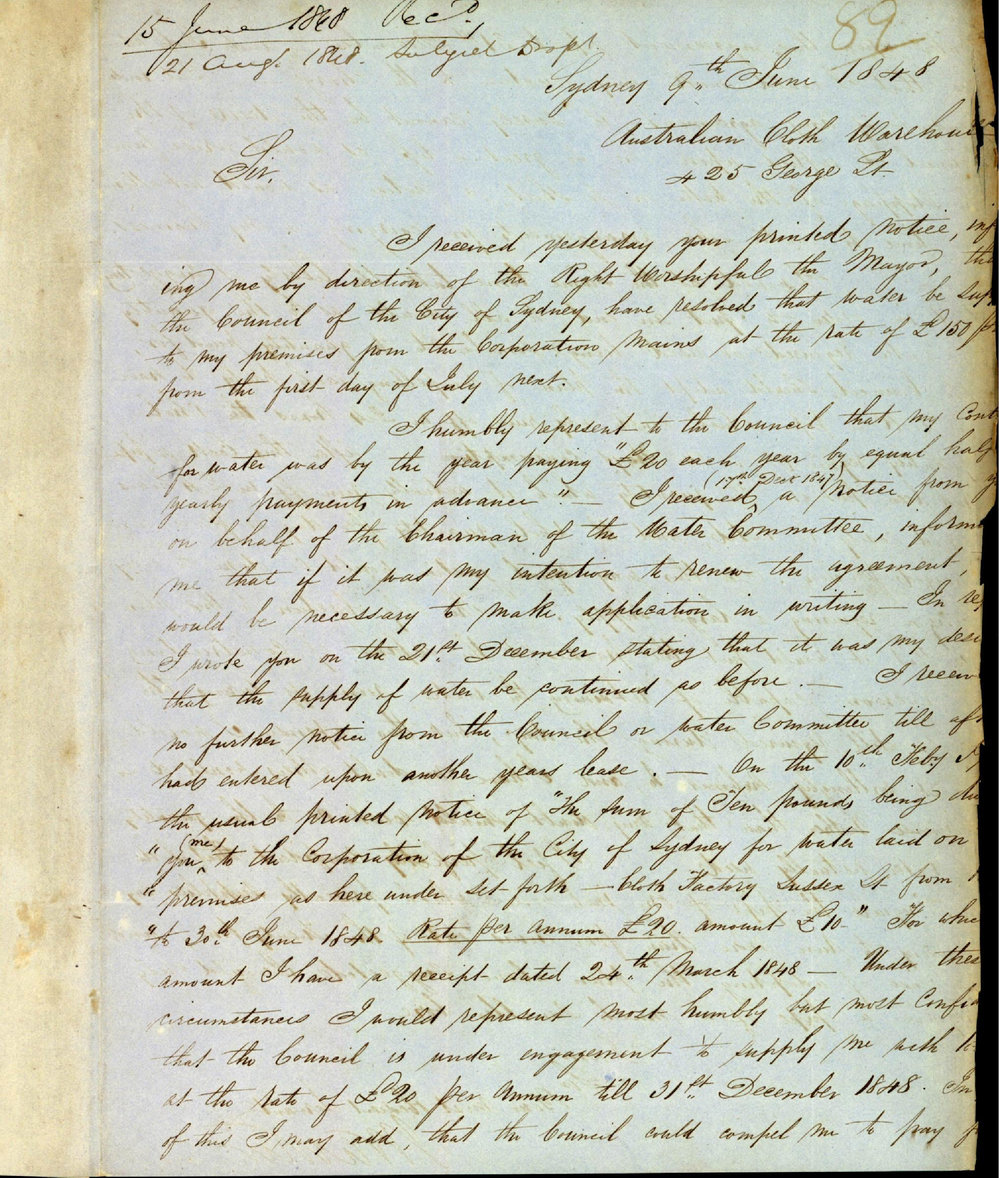 15 June 1848 Recd.
89
21 Augt. 1848. Subject Dropt
Sydney 9th June 1848
Australian Cloth Warehouse
425 George St.
Sir,
I received yesterday your printed Notice, inf
ing me by direction of the Right Worshipful the Mayor, that
the Council of the City of Sydney, have resolved that water be sup
to my premises from the Corporation Mains at the rate of £150 p
from the first day of July next.
I humbly represent to the Council that my Cont
for water was by the year paying "£20 each year by equal half
yearly payments in advance". — I received (17th Decr 1847) a Notice from y
on behalf of the Chairman of the Water Committee, inform
me that if it was my intention to renew the agreement,
would be necessary to make application in writing — In rep
I wrote you on the 21st December stating that it was my desi
that the supply of water be continued as before. — I receiv
no further notice from the Council or water Committee till aft
had entered upon another years lease. — On the 10th Feby I
the usual printed Notice of "The sum of Ten pounds being du
"you (me) to the Corporation of the City of Sydney for water laid on
"premises as here under set forth — Cloth Factory Sussex St from
"to 30th June 1848 Rate per annum £20. amount £10" For whic
amount I have a receipt dated 24th March 1848 — Under thes
circumstances I would represent most humbly but most Confid
that the Council is under engagement to supply me with
at the rate of £20 per Annum till 31st December 1848. In
of this I may add, that the Council could compel me to pay f